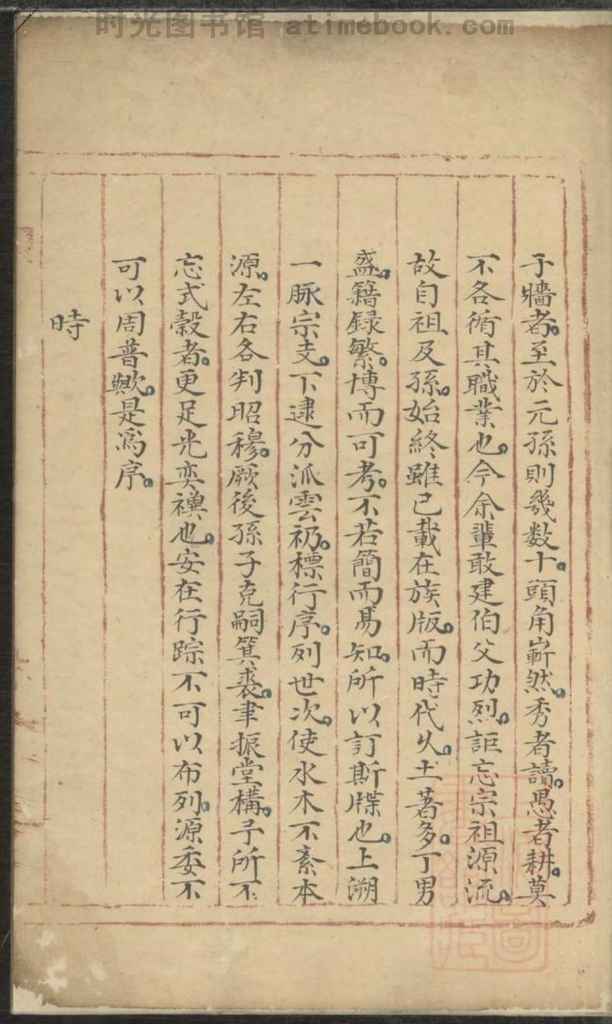 时光图书馆 atimebook.com
于牆者。至於元孫則幾数十。頭角嶄然。秀者讀。愚者耕。莫
不各循其職業也。今余輩敢建伯父功烈。詎忘宗祖源流。
故自祖及孫。始終雖已載在族版。而時代久。土著多。丁男
盛。籍録繁。博而可考。不若簡而易知。所以訂斯牒也。上溯
一脉宗支。下逮分派雲礽。標行序。列世次。使水木不紊本
源。左右各判昭穆。厥後孫子克嗣箕裘。聿振堂構。子所不
忘式榖者。更足光奕禩也。安在行踪不可以布列。源委不
可以周普歟。是為序。
時